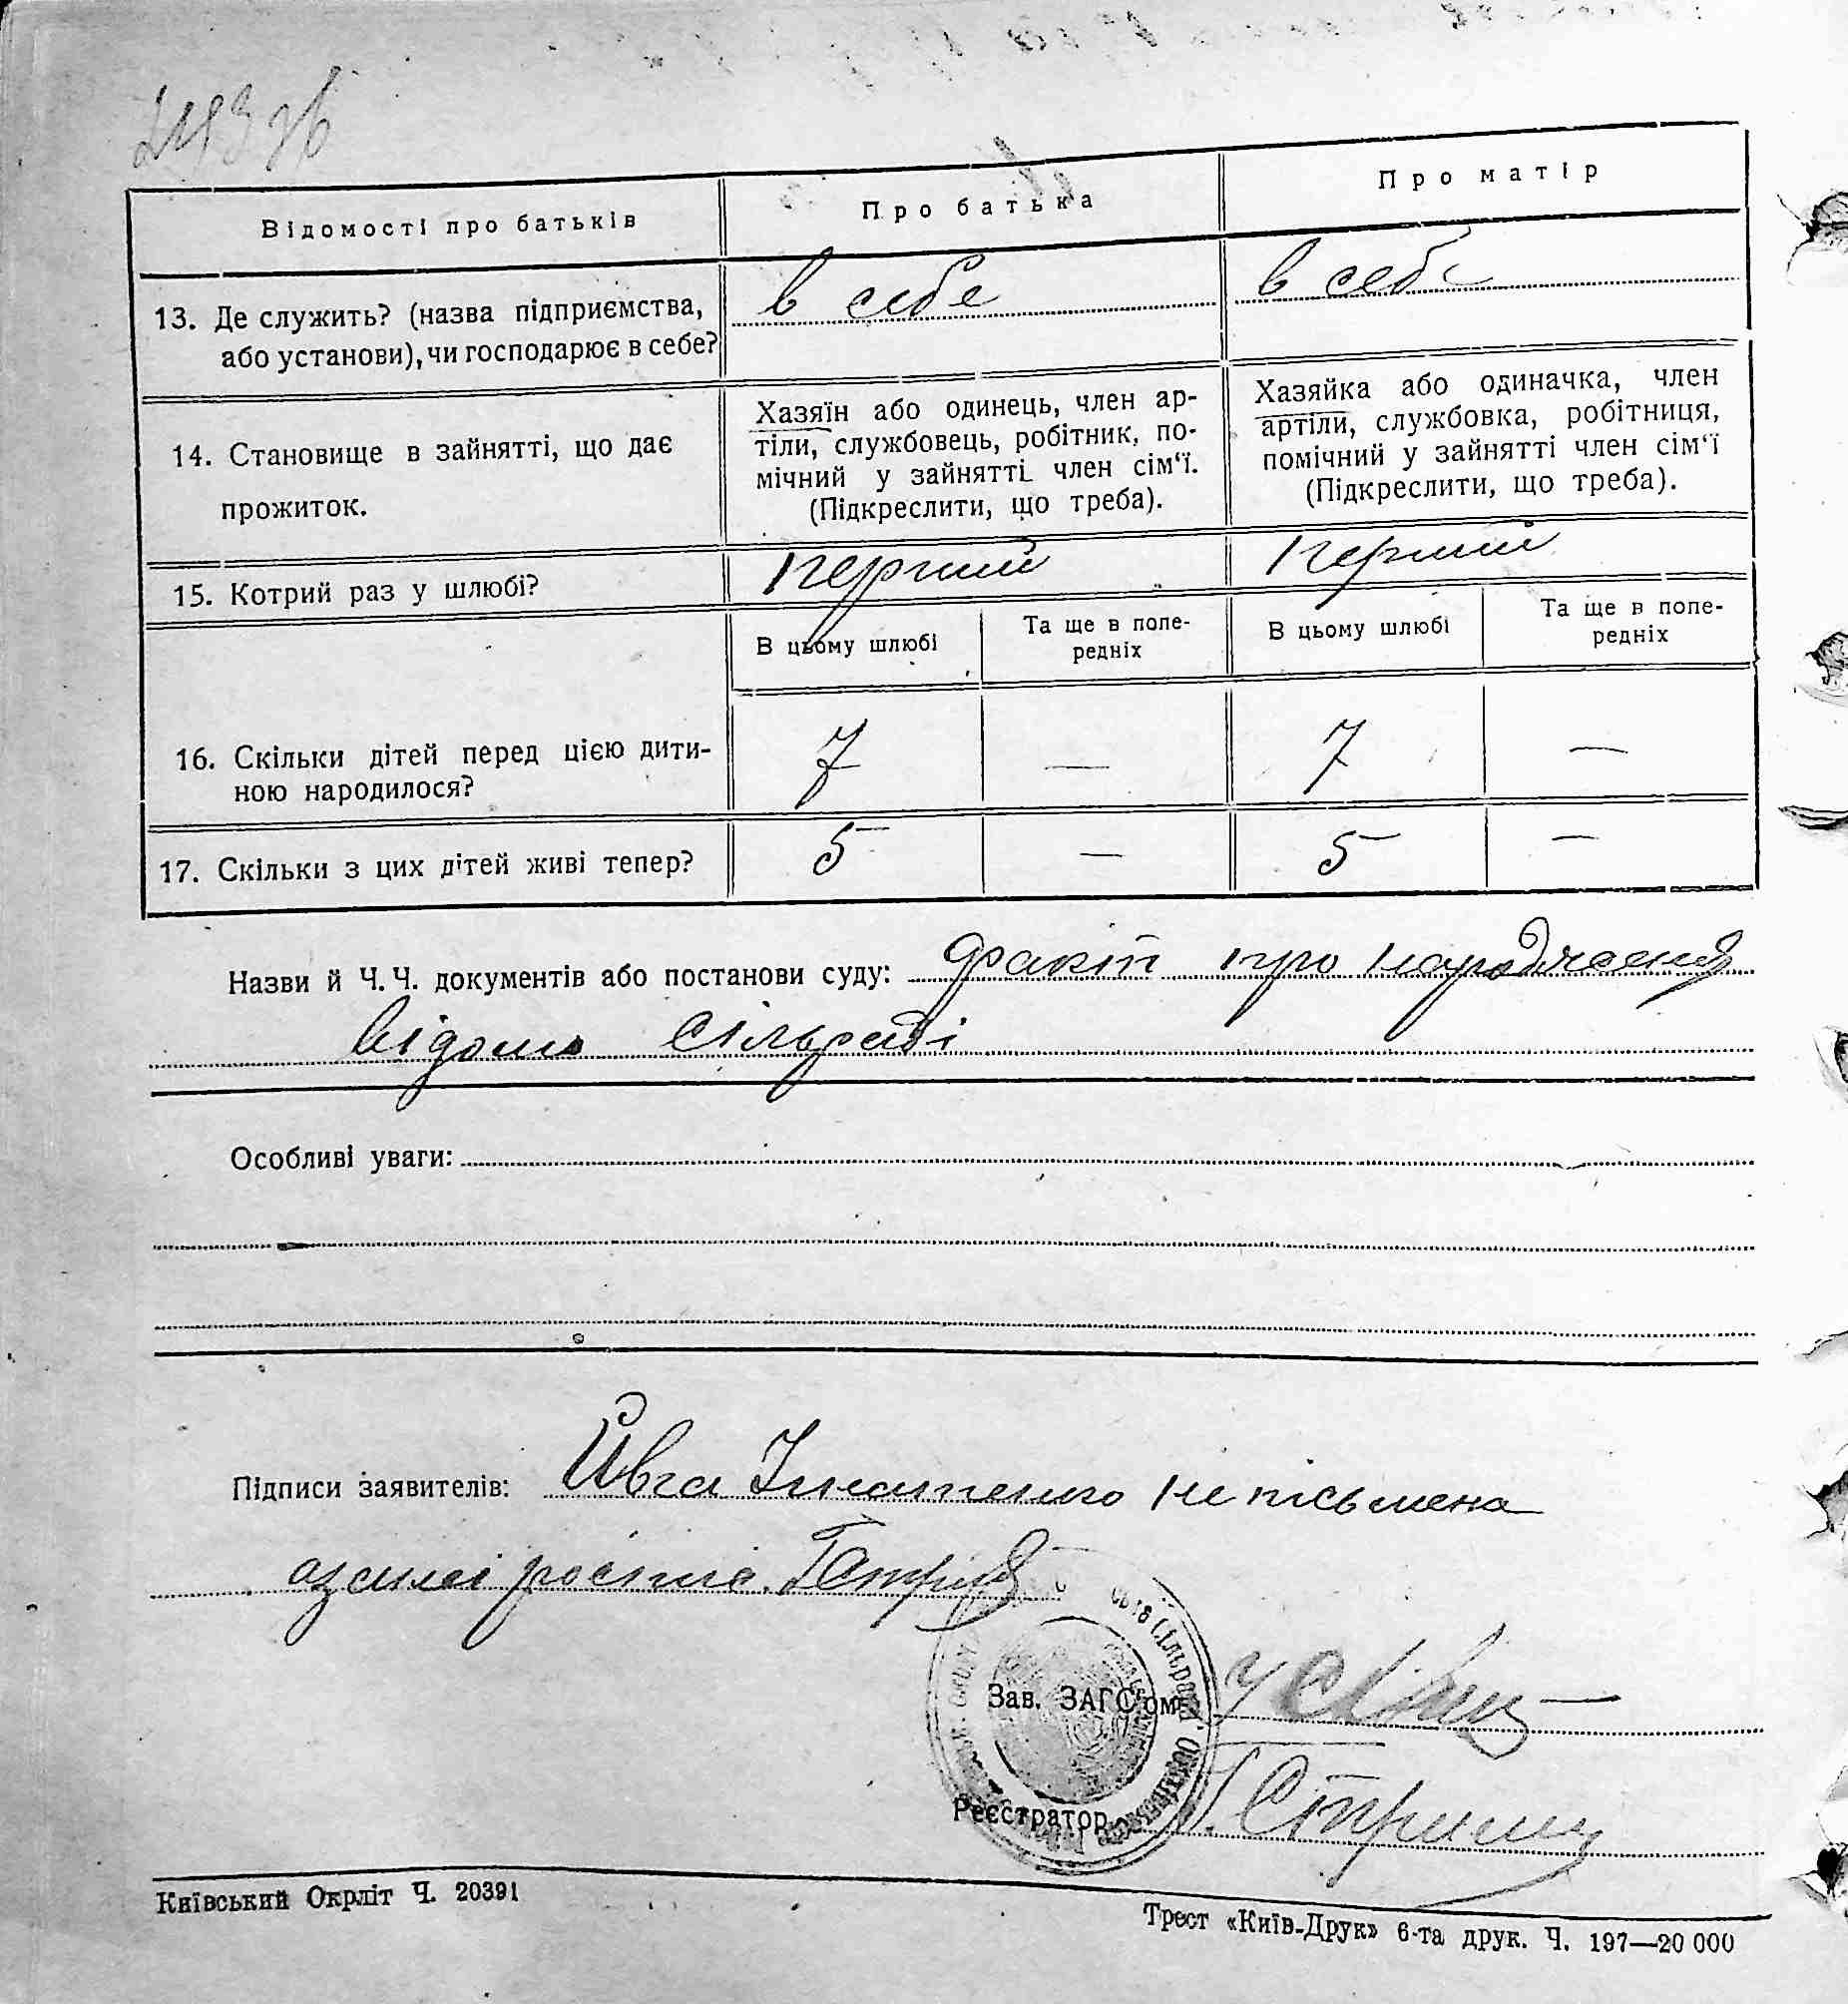 Відомості про батьків
Про батька
Про матір
13. Де служить? (назва підприємства,
або установи), чи господарює в себе?
в себе
в себе
14. Становище в зайнятті, що дає
прожиток.
Хазяїн або одинець, член ар-
тіли, службовець, робітник, по-
мічний у зайнятті член сім‘ї.
(Підкреслити, що треба).
Хазяйка або одиначка, член
артіли, службовка, робітниця,
помічний у зайнятті член сім‘ї
(Підкреслити, що треба).
15. Котрий раз у шлюбі?
перший
перший
В цьому шлюбі
Та ще в попе-
редніх
В цьому шлюбі
Та ще в попе-
редніх
16. Скільки дітей перед цією дити-
ною народилося?
7
—
7
—
17. Скільки з цих дітей живі тепер?
5
—
5
—
Назви й Ч. Ч. документів або постанови суду: факт про народження
відомо сільраді
Особливі уваги:
Підписи заявителів: Ивга непісьмена
Зав. ЗАГС'ом
Реєстратор
Київський Окрліт Ч. 20391
Трест «Київ-Друк» 6-та друк. Ч. 197—20 000